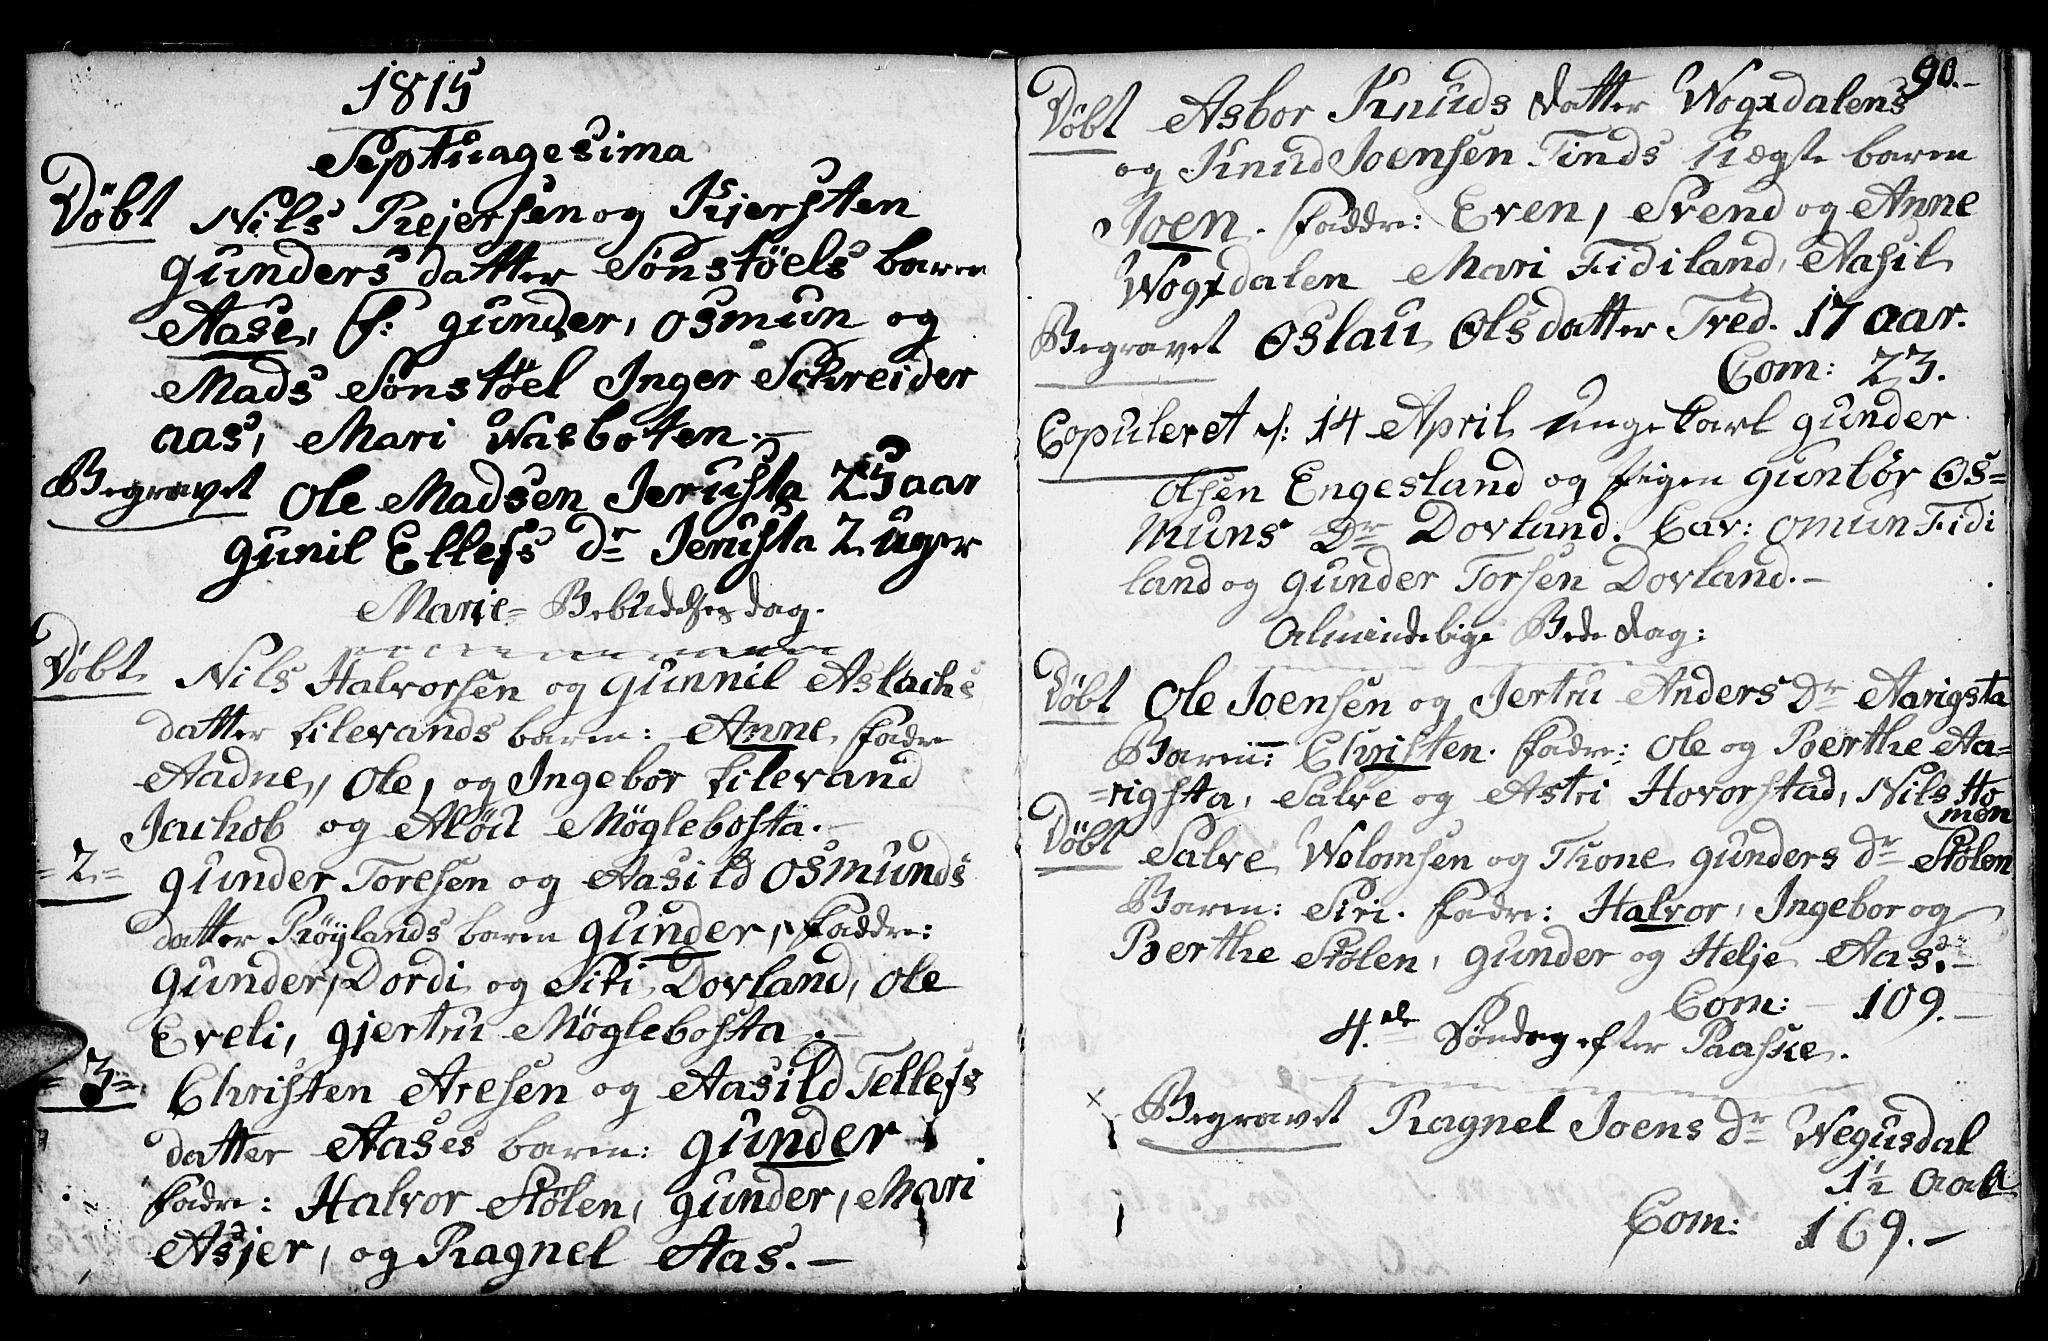 1815
Septuagesima
Döbt Nils Rejersen og Kjersten
gunders datter Sonstöels baren
Aase, f: gunder, osmun og
Mads Sönstöel Inger Schreider
aas, Mari Wasboten.-
Begravet Ole Madsen Jerusta 25 aar
gunil Ellefs dr Jerusta 2 uger
Marie= Bebudelses dag.
Döbt Nils Halvorsen og gunnil Aslachs
datter Lilevands baren: Anne fadre
Aadne, Ole, og Ingebor Lilevand
Jachob og Alöd Möglebosta.-
= 2.= gunder Toresen og Aasild Osmunds
datter Röylands baren gunder, faddre:
gunder, Dordi og Siri Dovland, Ole
Eveli, gjertru Möglebosta.-
= 3= Christen Aresen og Aasild Tellefs
datter Aases baren: gunder
fadre: Halvor Stölen, gunder, Mari
Asjer, og Ragnel Aas.-
90.-
Döbt Asbor Knuds datter Wogxdalens
og Knud Joensen Tinds Uægte baren
Joen. faddre: Even, Svend og Anne
Wogxdalen Mari Fidiland, Aasil
Begravet Oslau Olsdatter Tred. 17 aar.
Com: 23.
Copuleret d: 14 April Ungekarl gunder
Olsen Engesland og Pigen gunbör Os=
muns Dr Dovland. Cav: Omun Fidi
land og gunder Torsen Dovland.-
Almindelige Bede dag:
Döbt Ole Joensen og Jertru Anders Dr Aarigsta
Baren: Christen. fadre: Ole og Berthe Aa=
=rigsta, Salve og Astri Hovorstad, Nils Ho
men
Döbt Salve Wolomsen og Tone gunders dr Stölen
Baren: Siri. fadre: Halvor, Ingebor og
Berthe Stölen, gunder og Helje Aas.-
Com: - 109.-
4.de Söndag efter Paaske.
x Begravet Ragnel Joens Dr Wegusdal
1½ Aar
Com: 169.-